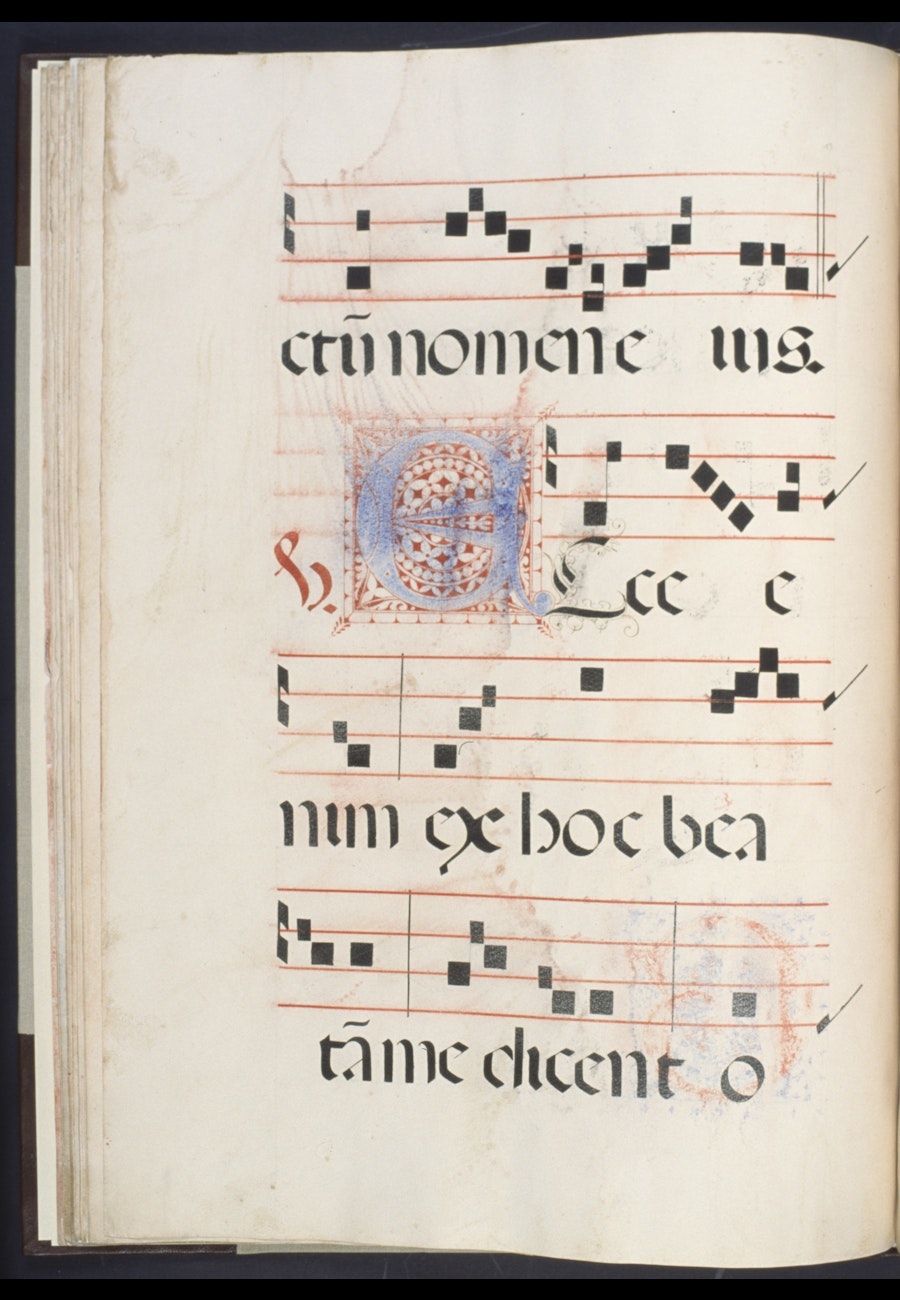 ctũ nomen e ius.
V. E Ecce e
nim ex hoc bea
tã me dicent o